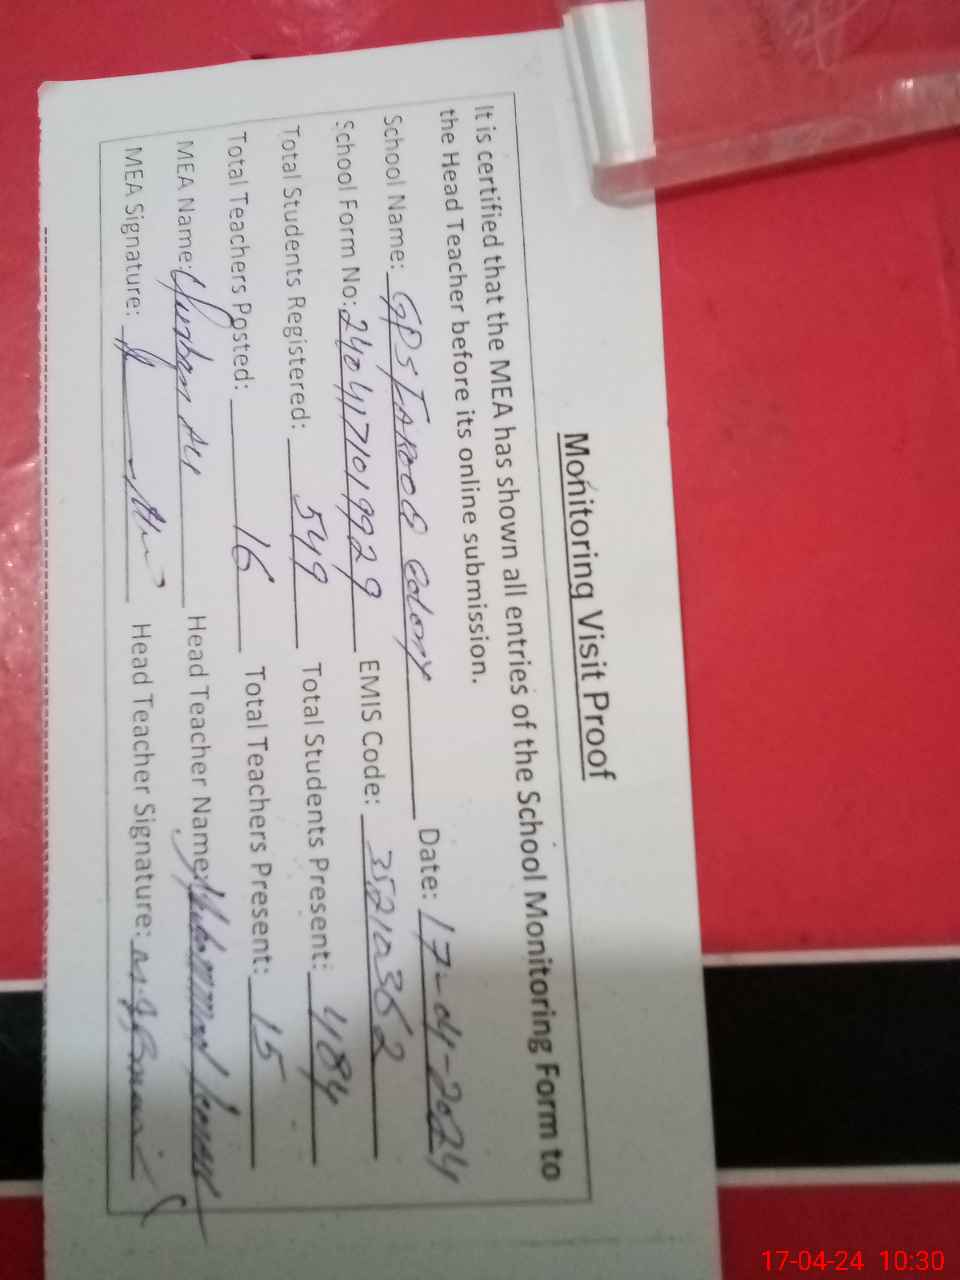 Monitoring Visit Proof
It is certified that the MEA has shown all entries of the School Monitoring Form to
the Head Teacher before its online submission.
School Name: GPS Colony Date: 17-04-2024
School Form No: 2404171019929 EMIS Code: 35210362
Total Students Registered: 549 Total Students Present: 484
Total Teachers Posted: 16 Total Teachers Present: 15
MEA Name: Ali Head Teacher Name: Muhammad
MEA Signature: Head Teacher Signature:
17-04-24 10:30